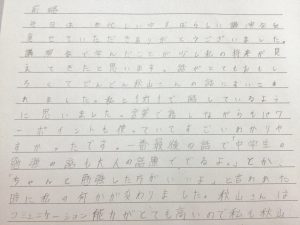 前略
先日は、お忙しい中すばらしい講演会を
見せていただきありがとうございました。
講演会で学んだことが少し私の将来が見
えてきたと思います。話がとてもおもし
ろくてどんどん秋山さんの話にすいこま
れました。私と1対1で話しているよう
に思いました。言葉で話しながらもパワ
ーポイントも使っていてすごいわかりや
すかったです。一番最後の話で「中学生の
勉強の悩みも大人の話題ででるよ。」とか、
「ちゃんと勉強した方がいいよ」と言われた
時に私の何かが変わりました。秋山さんは
コミュニケーション能力がとても高いので私も秋山